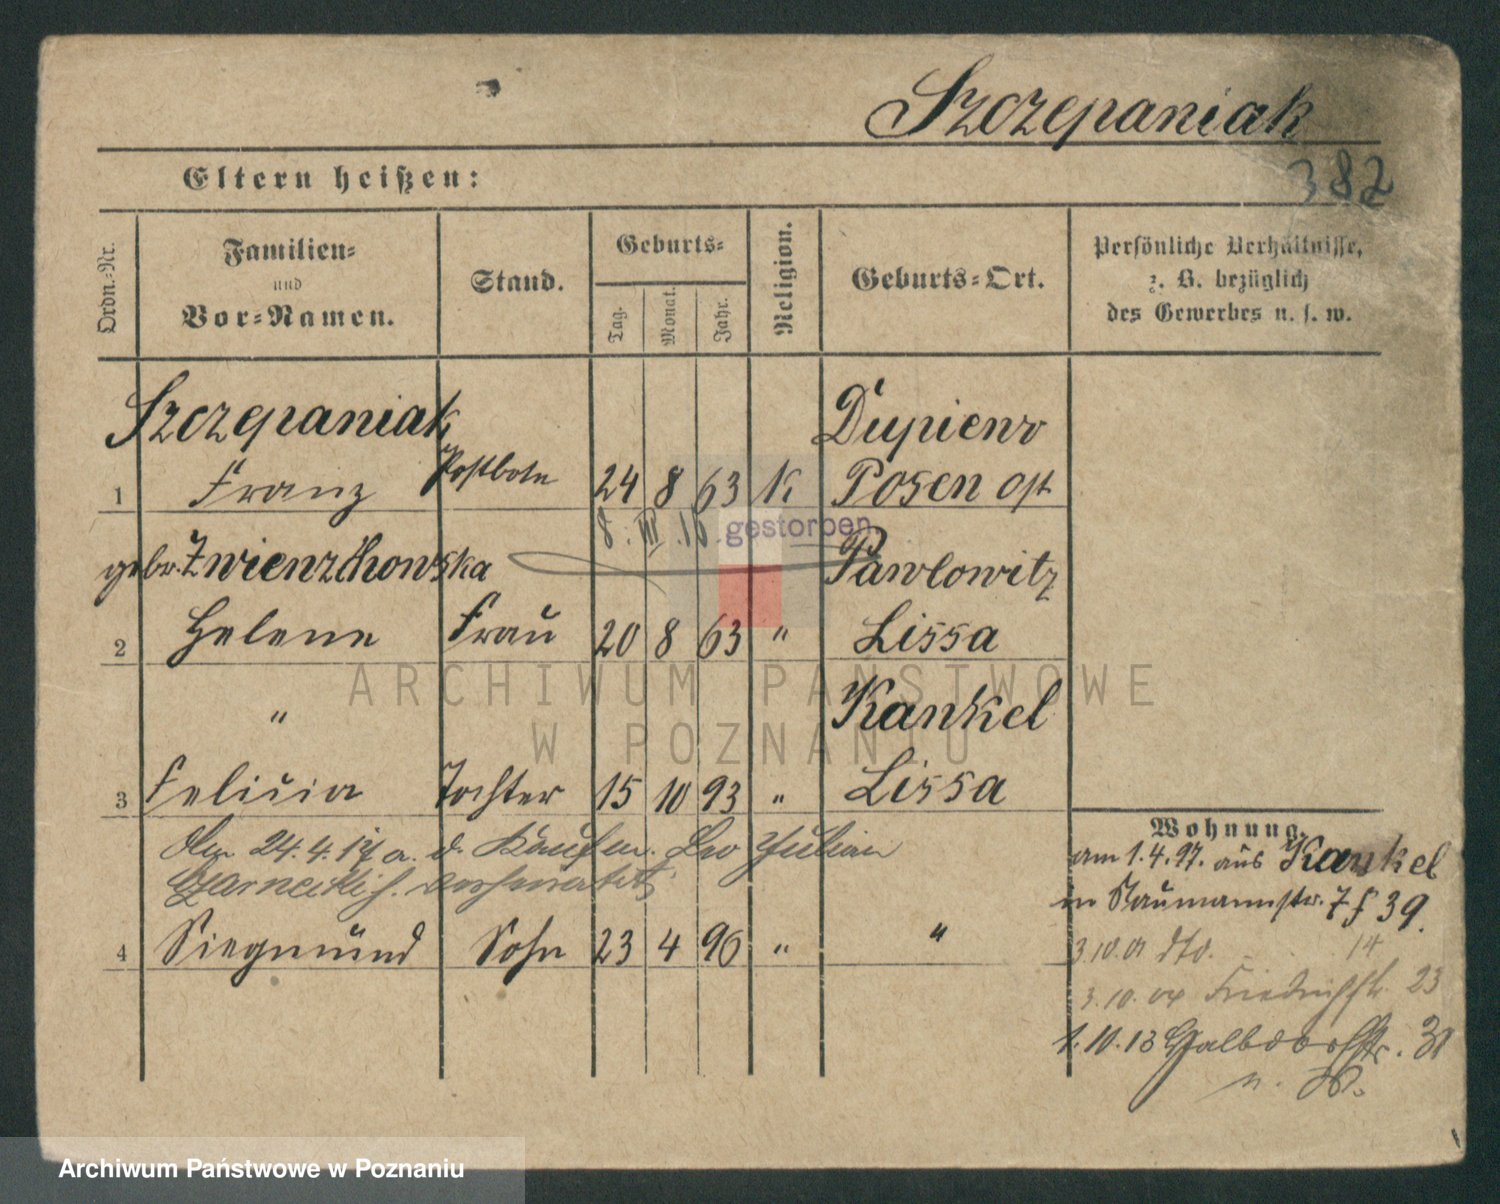 Szczepaniak
382
Eltern heißen:
Ordn.=Nr.
Familien=
und
Vor=Namen.
Stand.
Geburts=
Tag.
Monat.
Jahr.
Religion.
Geburts=Ort.
Persönliche Verhältnisse,
z. B. bezüglich
des Gewerbes u. s. w.
Szczepaniak Dupiewo
1 Franz Postbote 24 8 63 K Posen Ost
8. III. 16. gestorben
gebr. Pawlowitz
2 Helene Frau 20 8 63 " Lissa
" Kankel
3 Felicia Tochter 15 10 93 " Lissa
24.4.17 a. d. Kaufm. Leo Julian
Czarnecki
4 Siegmund Sohn 23 4 96 " "
Wohnung.
am 1.4.97. aus Kankel
in Naumannstr. 7 f 39.
3.10.01 dto. 14
3.10.04 Friedrichstr. 23
1.10.13
ARCHIWUM PAŃSTWOWE
W POZNANIU
Archiwum Państwowe w Poznaniu